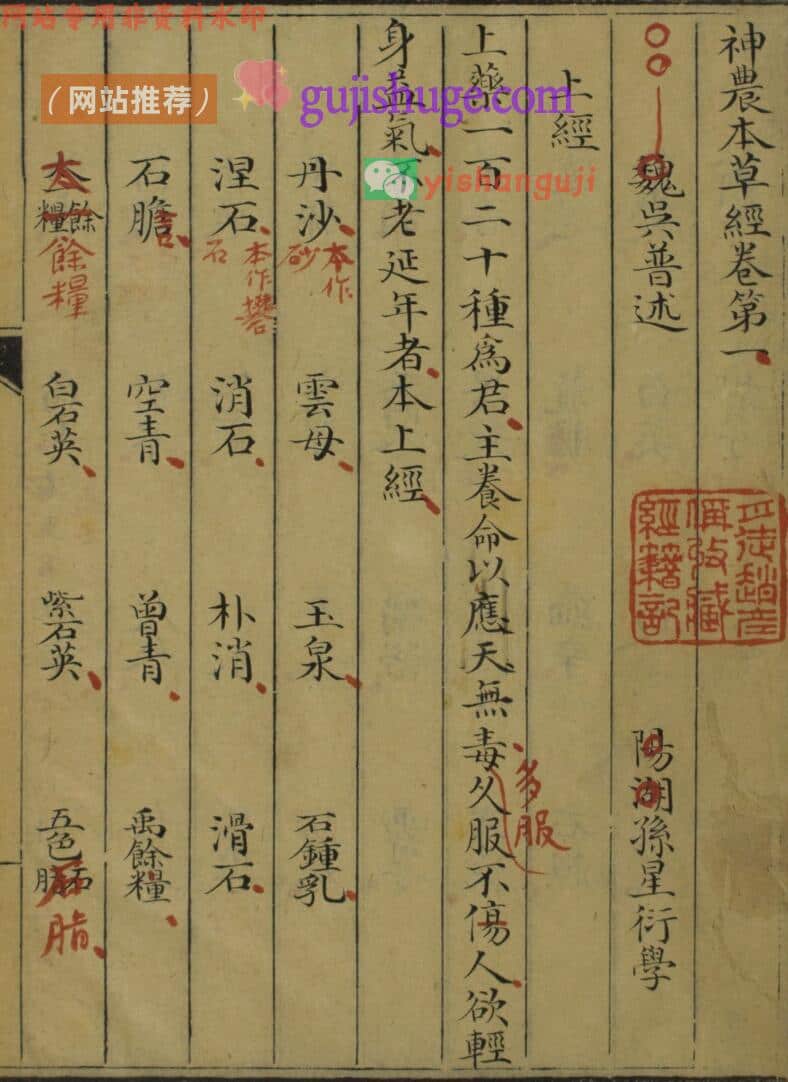 网站专用非资料水印
（网站推荐）
gujishuge.com
yishanguji
神農本草經卷第一
魏吳普述 陽湖孫星衍學
上經
上藥一百二十種爲君主養命以應天無毒久服不傷人欲輕
多服
身益氣不老延年者本上經
丹沙 雲母 玉泉 石鍾乳
本作砂
涅石 消石 朴消 滑石
本作礬石
石膽 空青 曾青 禹餘糧
太 餘糧 白石英 紫石英 五色石脂
餘糧
石脂
經籍記